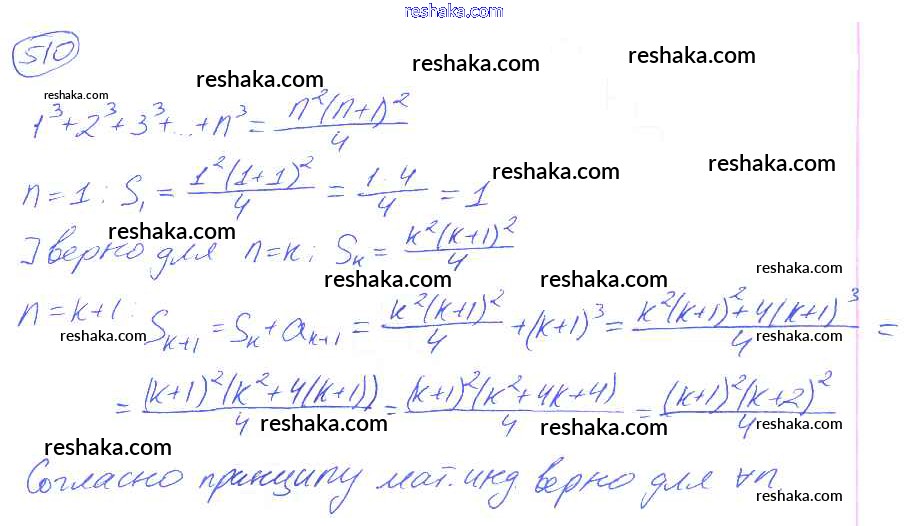 reshaka.com
510
reshaka.com reshaka.com reshaka.com
reshaka.com
1³+2³+3³+...+n³ = n²(n+1)²/4
reshaka.com reshaka.com
n=1: S₁ = 1²(1+1)²/4 = 1·4/4 = 1
reshaka.com
] верно для n=k: Sₖ = k²(k+1)²/4
reshaka.com reshaka.com reshaka.com
n=k+1: Sₖ₊₁ = Sₖ + aₖ₊₁ = k²(k+1)²/4 + (k+1)³ = k²(k+1)²+4(k+1)³/4 =
reshaka.com reshaka.com
= (k+1)²(k²+4(k+1))/4 = (k+1)²(k²+4k+4)/4 = (k+1)²(k+2)²/4
reshaka.com reshaka.com reshaka.com
reshaka.com
Согласно принципу мат. инд верно для ∀n
reshaka.com